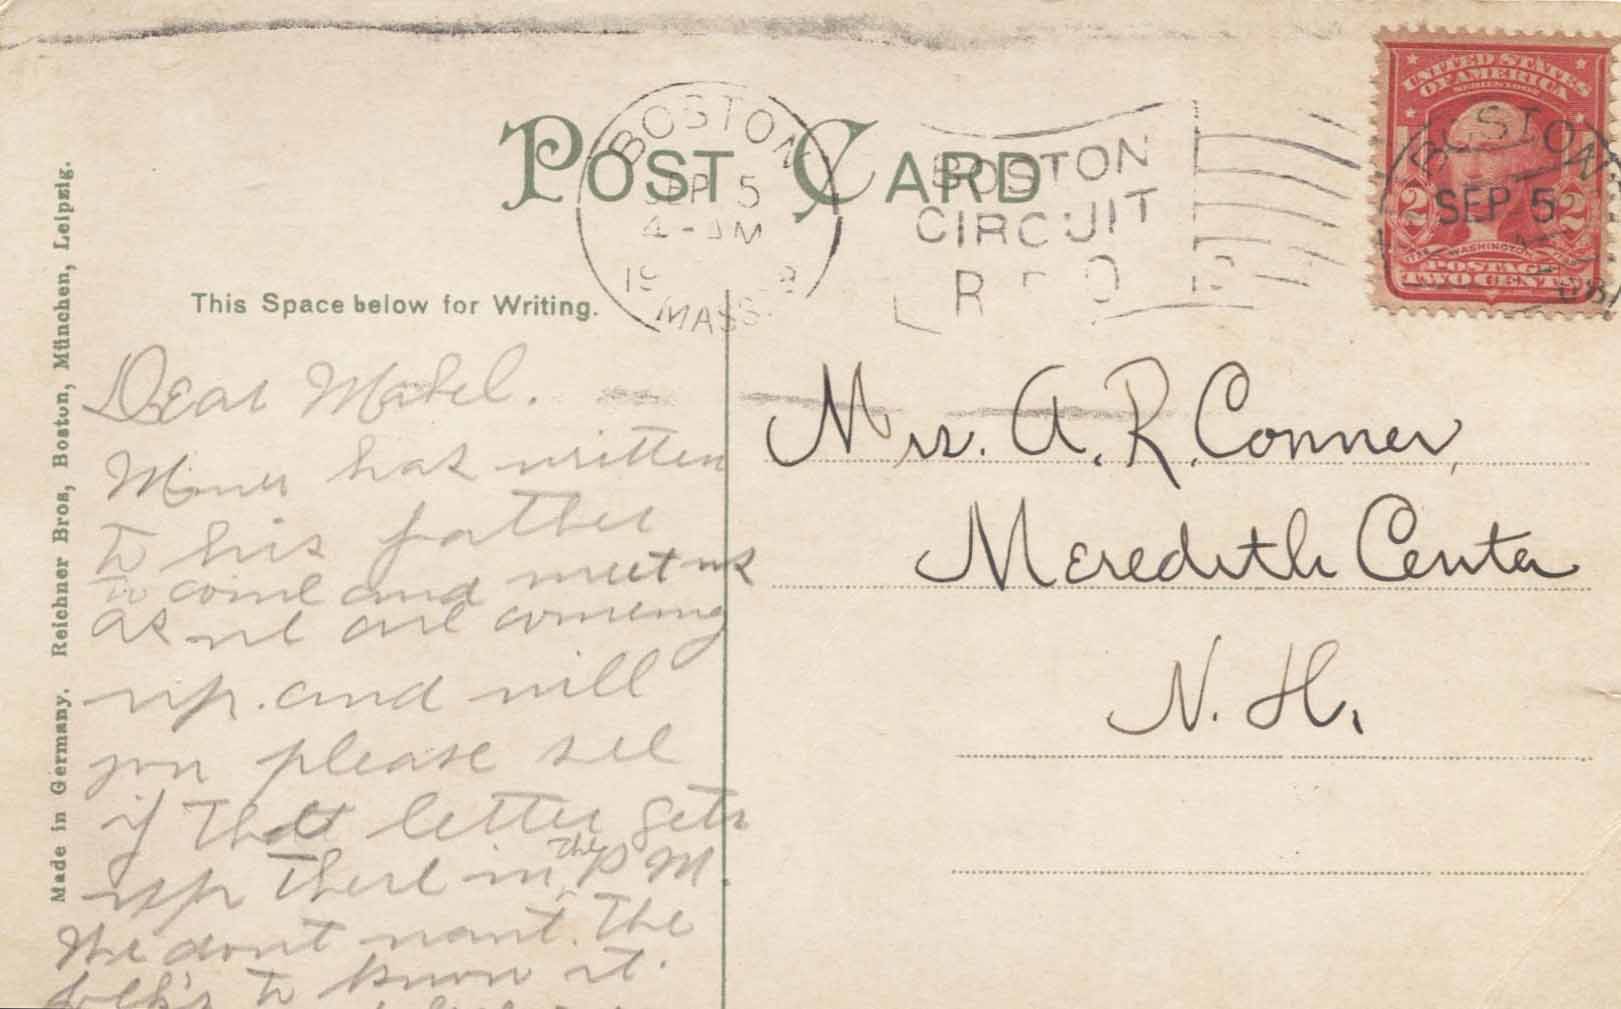 POST CARD
BOSTON
SEP 5
4-AM
MASS.
BOSTON
CIRCUIT
UNITED STATES
OF AMERICA
SERIES 1902
BOSTON
SEP 5
2 2
WASHINGTON
POSTAGE
TWO CENTS
This Space below for Writing.
Made in Germany. Reichner Bros, Boston, München, Leipzig.
Dear Mabel.
has written
to his father
to come and meet us
as we are comeing
up. and will
you please see
if that letter gets
up there in the P M.
We dont want. the
folk's to know it.
Mrs. A. R. Conner,
Meredith Center
N. H.